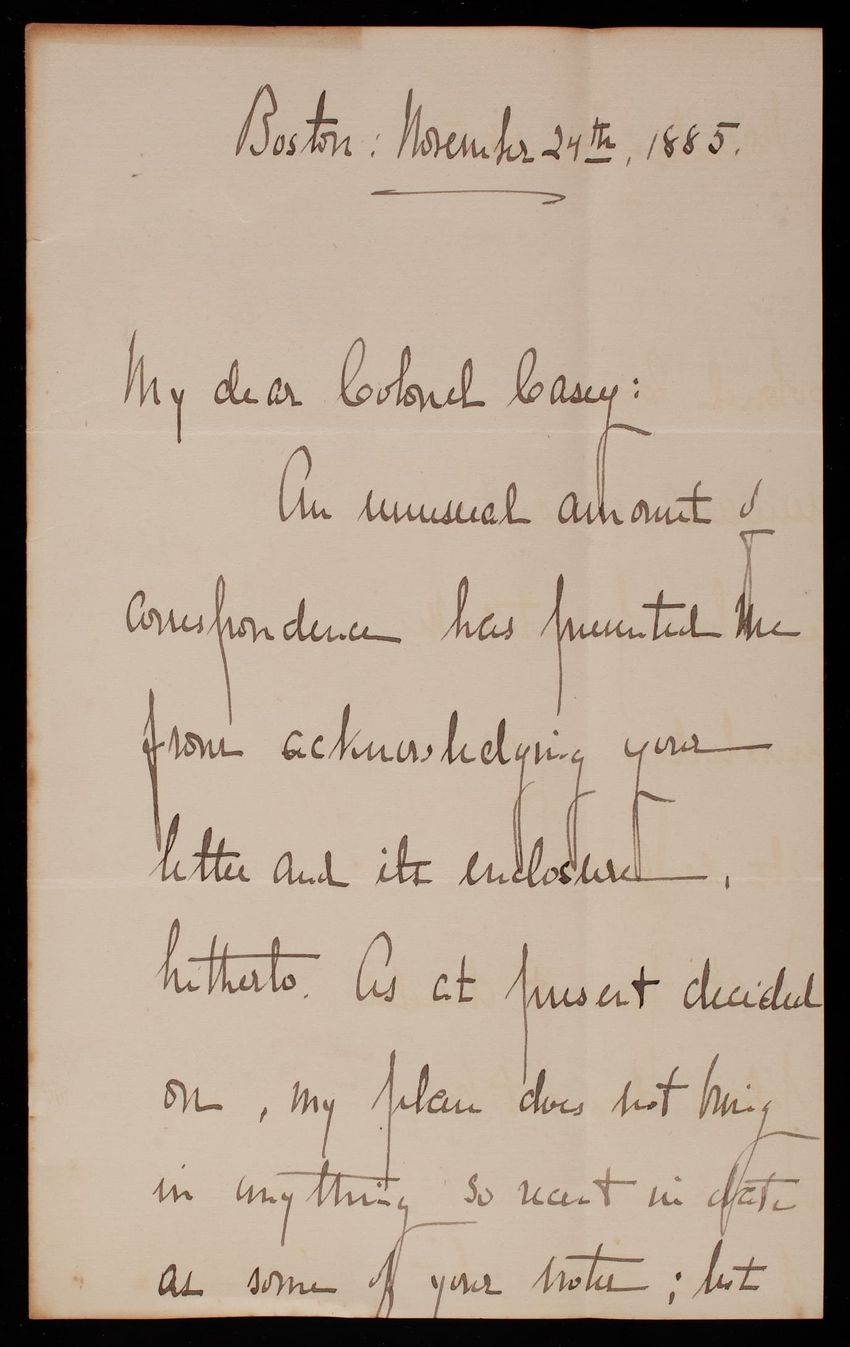 Boston: November 24th, 1885.
My dear Colonel Casey:
An unusual amount of
correspondence has prevented me
from acknowledging your
letter and its enclosure,
hitherto. As at present decided
on, my plan does not bring
in anything so recent in date
as some of your notes; but